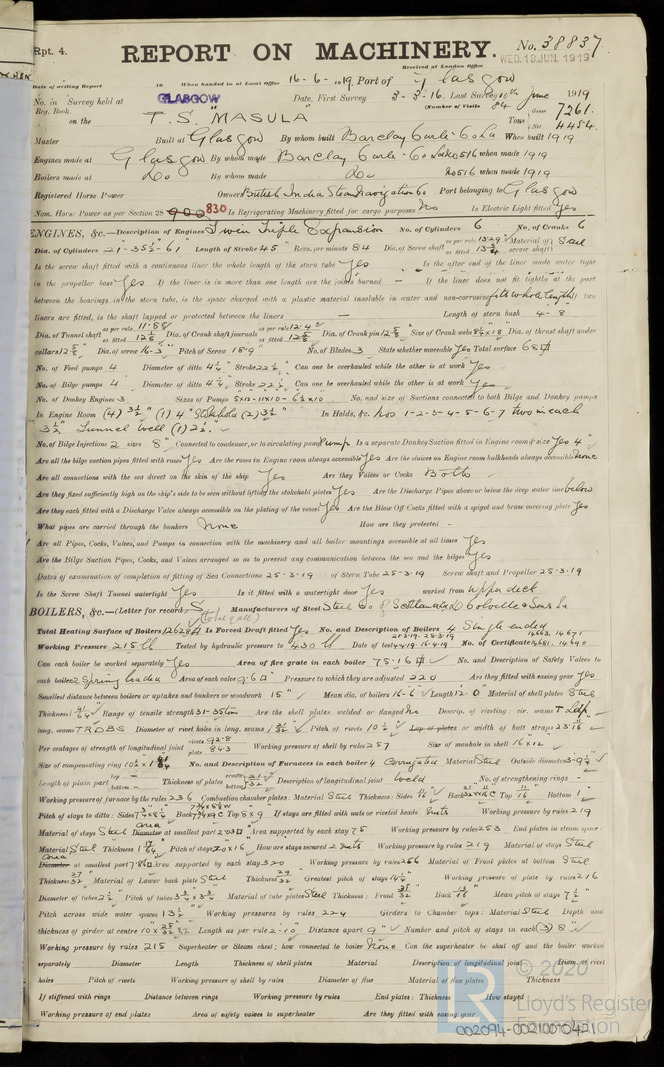 Rpt. 4.
REPORT ON MACHINERY.
No. 38837
Received at London Office WED. 18 JUN. 1919
Date of writing Report 19 When handed in at Local Office 16-6-1919 Port of Glasgow
No. in Survey held at GLASGOW Date, First Survey 3-3-16. Last Survey 10th June 1919
Reg. Book. (Number of Visits 84
on the T.S. "MASULA" Tons Gross 7261. Net 4484.
Master Built at Glasgow By whom built Barclay Curle & Co Ld When built 1919
Engines made at Glasgow By whom made Barclay Curle & Co Ld No 516 when made 1919
Boilers made at Do By whom made Do No 516 when made 1919
Registered Horse Power Owners British India Steam Navigation Co Port belonging to Glasgow
Nom. Horse Power as per Section 28 900 830 Is Refrigerating Machinery fitted for cargo purposes No Is Electric Light fitted Yes
ENGINES, &c.—Description of Engines Twin Triple Expansion No. of Cylinders 6 No. of Cranks 6
Dia. of Cylinders 21-35½-61 Length of Stroke 45" Revs. per minute 84 Dia. of Screw shaft as per rule 13.29 as fitted 13¾ Material of screw shaft Steel
Is the screw shaft fitted with a continuous liner the whole length of the stern tube Yes Is the after end of the liner made water tight
in the propeller boss Yes If the liner is in more than one length are the joints burned — If the liner does not fit tightly at the part
between the bearings in the stern tube, is the space charged with a plastic material insoluble in water and non-corrosive fits whole length If two
liners are fitted, is the shaft lapped or protected between the liners — Length of stern bush 4-8
Dia. of Tunnel shaft as per rule 11.85 as fitted 12⅝ Dia. of Crank shaft journals as per rule 12.4 as fitted 12⅝ Dia. of Crank pin 12⅝ Size of Crank webs Dia. of thrust shaft under
collars 12⅝" Dia. of screw 16-3" Pitch of Screw 18-9" No. of Blades 3 State whether moveable Yes Total surface 68
No. of Feed pumps 4 Diameter of ditto 4½" Stroke 22½" Can one be overhauled while the other is at work Yes
No. of Bilge pumps 4 Diameter of ditto 4½" Stroke 22½" Can one be overhauled while the other is at work Yes
No. of Donkey Engines 3 Sizes of Pumps No. and size of Suctions connected to both Bilge and Donkey pumps
In Engine Room (4) 3½" (1) 4" Stokehold (2) 3½" In Holds, &c. Nos 1-2-3-4-5-6-7 two in each
3½" Tunnel well (1) 2½"
No. of Bilge Injections 2 sizes 8" Connected to condenser, or to circulating pump Pump Is a separate Donkey Suction fitted in Engine room & size Yes 4"
Are all the bilge suction pipes fitted with roses Yes Are the roses in Engine room always accessible Yes Are the sluices on Engine room bulkheads always accessible None
Are all connections with the sea direct on the skin of the ship Yes Are they Valves or Cocks Both
Are they fixed sufficiently high on the ship's side to be seen without lifting the stokehold plates Yes Are the Discharge Pipes above or below the deep water line below
Are they each fitted with a Discharge Valve always accessible on the plating of the vessel Yes Are the Blow Off Cocks fitted with a spigot and brass covering plate Yes
What pipes are carried through the bunkers None How are they protected -
Are all Pipes, Cocks, Valves, and Pumps in connection with the machinery and all boiler mountings accessible at all times Yes
Are the Bilge Suction Pipes, Cocks, and Valves arranged so as to prevent any communication between the sea and the bilges Yes
Dates of examination of completion of fitting of Sea Connections 25-3-19 of Stern Tube 25-3-19 Screw shaft and Propeller 25-3-19
Is the Screw Shaft Tunnel watertight Yes Is it fitted with a watertight door Yes worked from upper deck
BOILERS, &c.—(Letter for record S) Manufacturers of Steel Steel Co of Scotland and D Colville & Sons Ld
Total Heating Surface of Boilers 12628 Is Forced Draft fitted Yes No. and Description of Boilers 4 Single ended
Working Pressure 215 lb Tested by hydraulic pressure to 430 lb Date of test No. of Certificate
Can each boiler be worked separately Yes Area of fire grate in each boiler 75.16 No. and Description of Safety Valves to
each boiler 2 Spring loaded Area of each valve 9.6 Pressure to which they are adjusted 220 Are they fitted with easing gear Yes
Smallest distance between boilers or uptakes and bunkers or woodwork 15" Mean dia. of boilers 16-6 Length 12-0 Material of shell plates Steel
Thickness Range of tensile strength 31-35 tons Are the shell plates welded or flanged No Descrip. of riveting: cir. seams T Lap
long. seams TRDBS Diameter of rivet holes in long. seams Pitch of rivets 10½ Lap of plates or width of butt straps 23⅛
Per centages of strength of longitudinal joint rivets 92.8 plate 84.3 Working pressure of shell by rules 257 Size of manhole in shell 16x12
Size of compensating ring No. and Description of Furnaces in each boiler 4 Corrugated Material Steel Outside diameter
Length of plain part top bottom Thickness of plates crown bottom 21/32 Description of longitudinal joint Weld No. of strengthening rings -
Working pressure of furnace by the rules 236 Combustion chamber plates: Material Steel Thickness: Sides Back Top Bottom 1"
Pitch of stays to ditto: Sides Back Top 8x9 If stays are fitted with nuts or riveted heads nuts Working pressure by rules 219
Material of stays Steel Diameter area at smallest part 2.03 Area supported by each stay 75 Working pressure by rules 253 End plates in steam space:
Material Steel Thickness Pitch of stays 20x16 How are stays secured 2 nuts Working pressure by rules 219 Material of stays Steel
Diameter area at smallest part 7.86 Area supported by each stay 320 Working pressure by rules 256 Material of Front plates at bottom Steel
Thickness Material of Lower back plate Steel Thickness 29/32 Greatest pitch of stays 14¼ Working pressure of plate by rules 216
Diameter of tubes 2½" Pitch of tubes Material of tube plates Steel Thickness: Front Back Mean pitch of stays 7½"
Pitch across wide water spaces 13½ Working pressures by rules 224 Girders to Chamber tops: Material Steel Depth and
thickness of girder at centre Length as per rule 2-10 Distance apart 9" Number and pitch of stays in each (3) 8"
Working pressure by rules 215 Superheater or Steam chest; how connected to boiler None Can the superheater be shut off and the boiler worked
separately Diameter Length Thickness of shell plates Material Description of longitudinal joint Diam. of rivet
holes Pitch of rivets Working pressure of shell by rules Diameter of flue Material of flue plates Thickness
If stiffened with rings Distance between rings Working pressure by rules End plates: Thickness How stayed
Working pressure of end plates Area of safety valves to superheater Are they fitted with easing gear
© 2020
Lloyd's Register
Foundation
002094-002100-0421